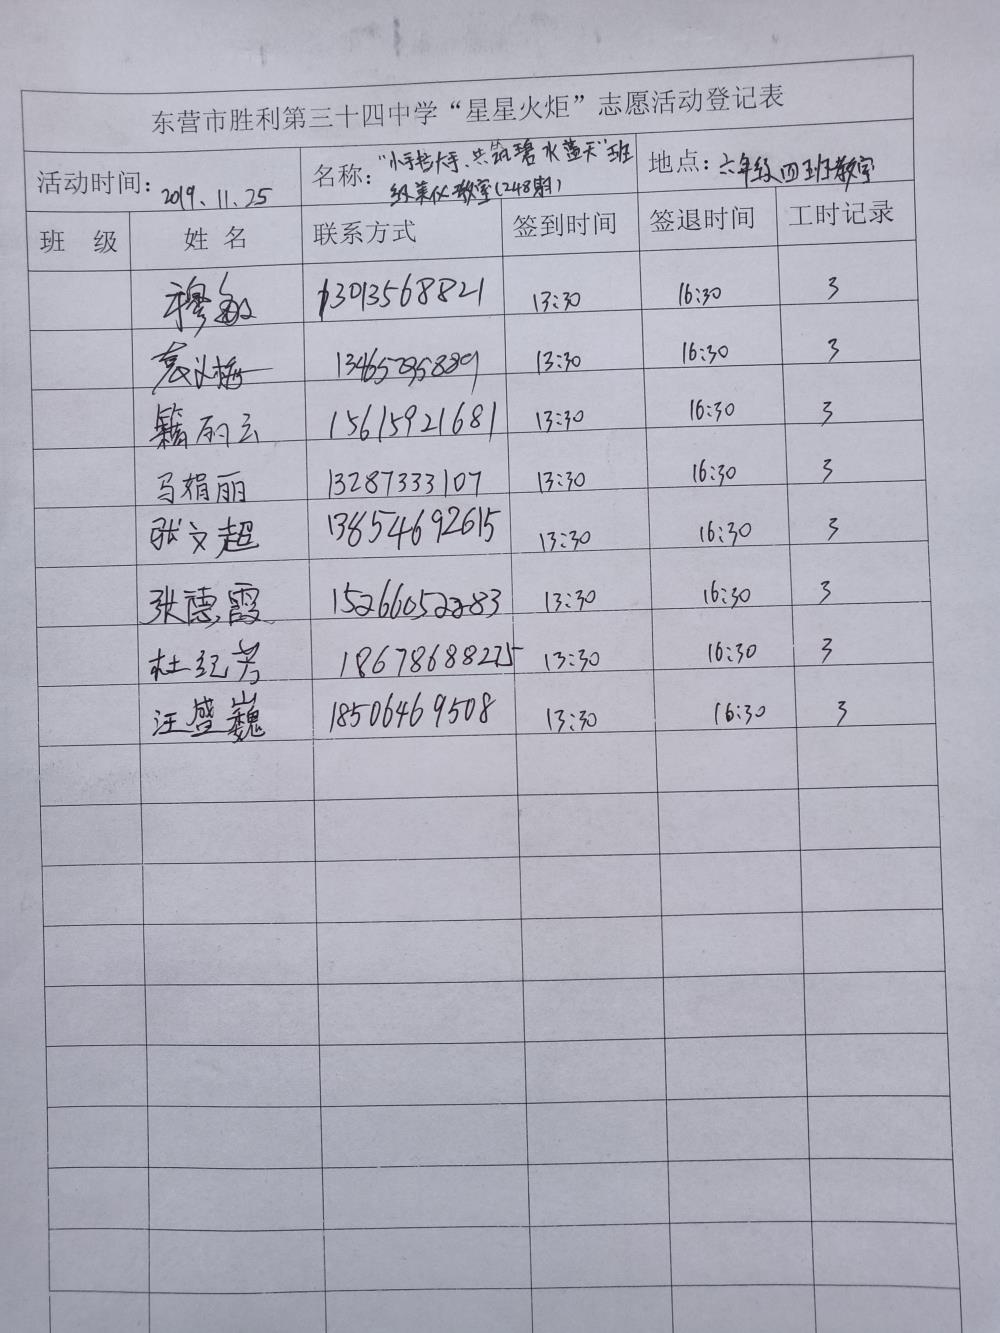 东营市胜利第三十四中学“星星火炬”志愿活动登记表
活动时间：2019.11.25 名称：“小手拉大手、共筑碧水蓝天”班 地点：六年级四班教室
级美化教室(248期)
班 级 姓 名 联系方式 签到时间 签退时间 工时记录
穆敏 13013568821 13:30 16:30 3
袁义梅 13:30 16:30 3
籍丽云 15615921681 13:30 16:30 3
马娟丽 13287333107 13:30 16:30 3
张文超 13854692615 13:30 16:30 3
张德霞 15266052283 13:30 16:30 3
杜纪芳 18678688225 13:30 16:30 3
汪盛巍 18506469508 13:30 16:30 3